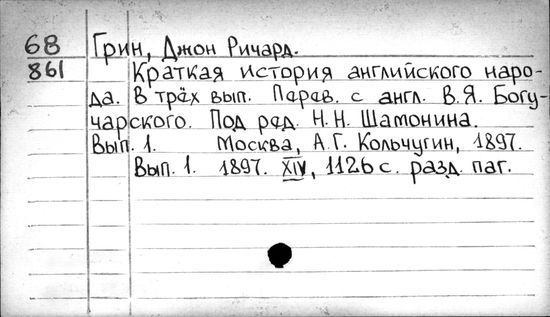 68 Грин, Джон Ричард.
861 Краткая история английского наро-
да. В трёх вып. Перев. с англ. В.Я. Богу-
чарского. Под ред. Н.Н. Шамонина.
Вып. 1. Москва, А.Г. Кольчугин, 1897.
Вып. 1. 1897. XIV, 1126 с. разд. паг.